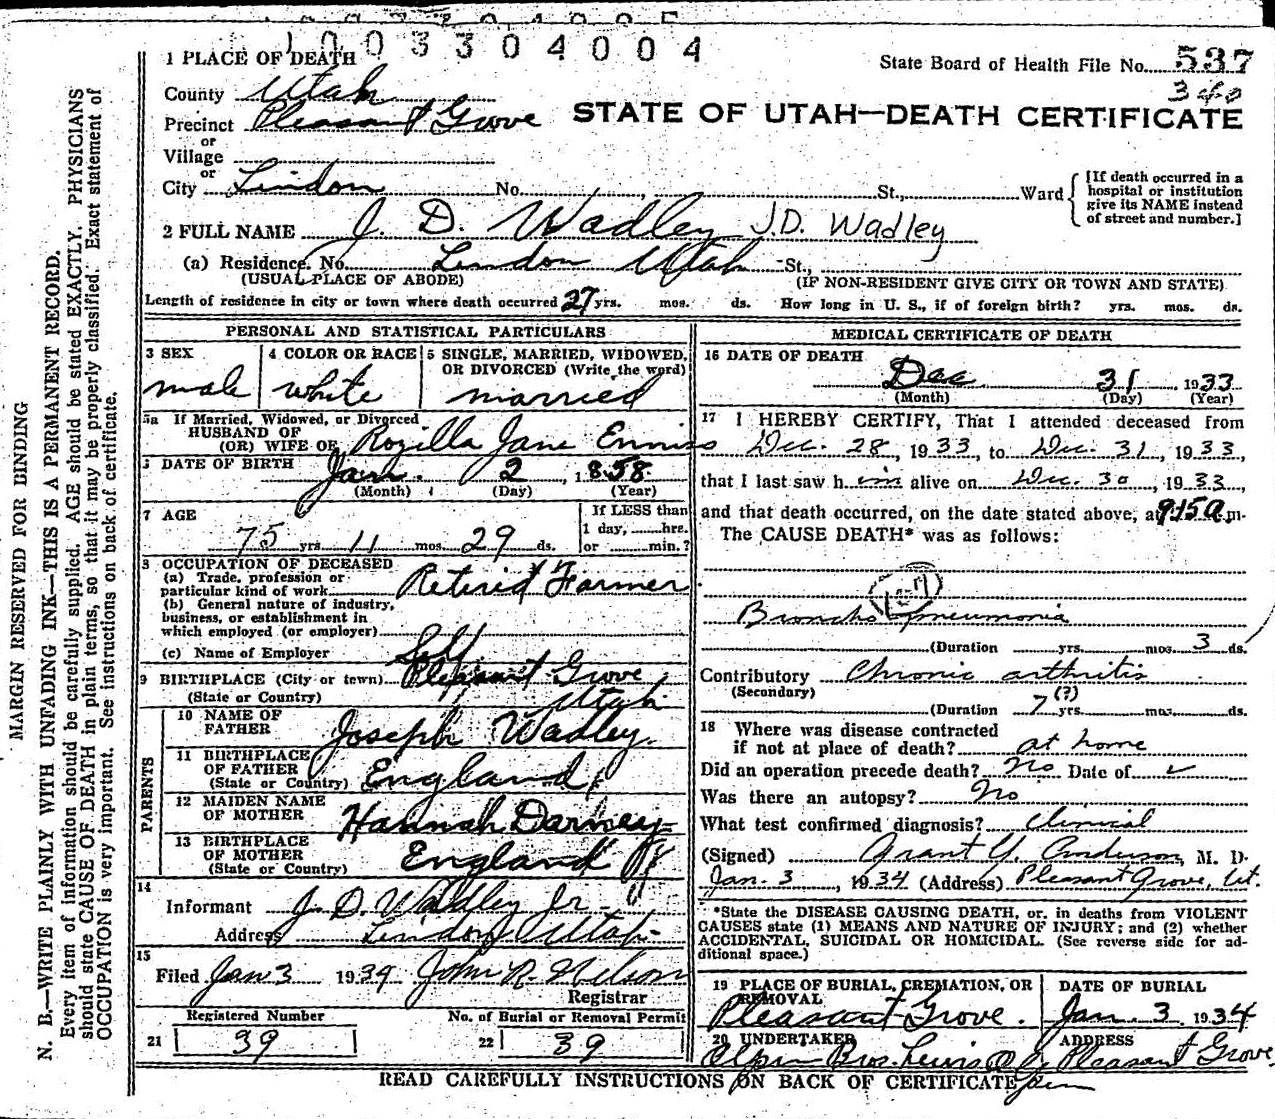 1003304004
1 PLACE OF DEATH
State Board of Health File No. 537
County Utah
340
Precinct Pleasant Grove
STATE OF UTAH—DEATH CERTIFICATE
or
Village
or
City Lindon No. St., Ward
[If death occurred in a
hospital or institution
give its NAME instead
of street and number.]
2 FULL NAME J. D. Wadley J.D. Wadley
(a) Residence. No. Lindon Utah St.,
(USUAL PLACE OF ABODE) (IF NON-RESIDENT GIVE CITY OR TOWN AND STATE)
Length of residence in city or town where death occurred 27 yrs. mos. ds. How long in U. S., if of foreign birth? yrs. mos. ds.
PERSONAL AND STATISTICAL PARTICULARS
3 SEX
male
4 COLOR OR RACE
white
5 SINGLE, MARRIED, WIDOWED,
OR DIVORCED (Write the word)
married
5a If Married, Widowed, or Divorced
HUSBAND OF
(OR) WIFE OF Rozilla Jane Enniss
DATE OF BIRTH
Jan. 2, 1858
(Month) (Day) (Year)
7 AGE
75 yrs 11 mos. 29 ds.
If LESS than
1 day, hrs.
or min.?
8 OCCUPATION OF DECEASED
(a) Trade, profession or
particular kind of work Retired Farmer
(b) General nature of industry,
business, or establishment in
which employed (or employer)
(c) Name of Employer Self
9 BIRTHPLACE (City or town) Pleasant Grove
(State or Country) Utah
PARENTS
10 NAME OF
FATHER Joseph Wadley
11 BIRTHPLACE
OF FATHER
(State or Country) England
12 MAIDEN NAME
OF MOTHER Hannah Darney
13 BIRTHPLACE
OF MOTHER England
(State or Country)
14
Informant J. D. Wadley Jr.
Address Lindon Utah
15
Filed Jan 3 1934 John R. Nelson
Registrar
Registered Number
21 39
No. of Burial or Removal Permit
22 39
MEDICAL CERTIFICATE OF DEATH
16 DATE OF DEATH
Dec 31, 1933
(Month) (Day) (Year)
17 I HEREBY CERTIFY, That I attended deceased from
Dec. 28, 1933, to Dec. 31, 1933,
that I last saw him alive on Dec. 30, 1933,
and that death occurred, on the date stated above, at 9:15 a. m.
The CAUSE DEATH* was as follows:
Broncho pneumonia
(Duration yrs. mos. 3 ds.
Contributory Chronic arthritis
(Secondary) (?)
(Duration 7 yrs. mos. ds.
18 Where was disease contracted
if not at place of death? at home
Did an operation precede death? No Date of ✓
Was there an autopsy? No
What test confirmed diagnosis? Clinical
(Signed) Grant Y. Anderson, M. D.
Jan. 3, 1934 (Address) Pleasant Grove, Ut.
*State the DISEASE CAUSING DEATH, or, in deaths from VIOLENT
CAUSES state (1) MEANS AND NATURE OF INJURY; and (2) whether
ACCIDENTAL, SUICIDAL OR HOMICIDAL. (See reverse side for ad-
ditional space.)
19 PLACE OF BURIAL, CREMATION, OR
REMOVAL
Pleasant Grove.
DATE OF BURIAL
Jan. 3. 1934
20 UNDERTAKER
Olpin Bros. Lewis
ADDRESS
Pleasant Grove
READ CAREFULLY INSTRUCTIONS ON BACK OF CERTIFICATE
MARGIN RESERVED FOR BINDING
N. B.—WRITE PLAINLY WITH UNFADING INK—THIS IS A PERMANENT RECORD.
Every item of information should be carefully supplied. AGE should be stated EXACTLY. PHYSICIANS
should state CAUSE OF DEATH in plain terms, so that it may be properly classified. Exact statement of
OCCUPATION is very important. See instructions on back of certificate.